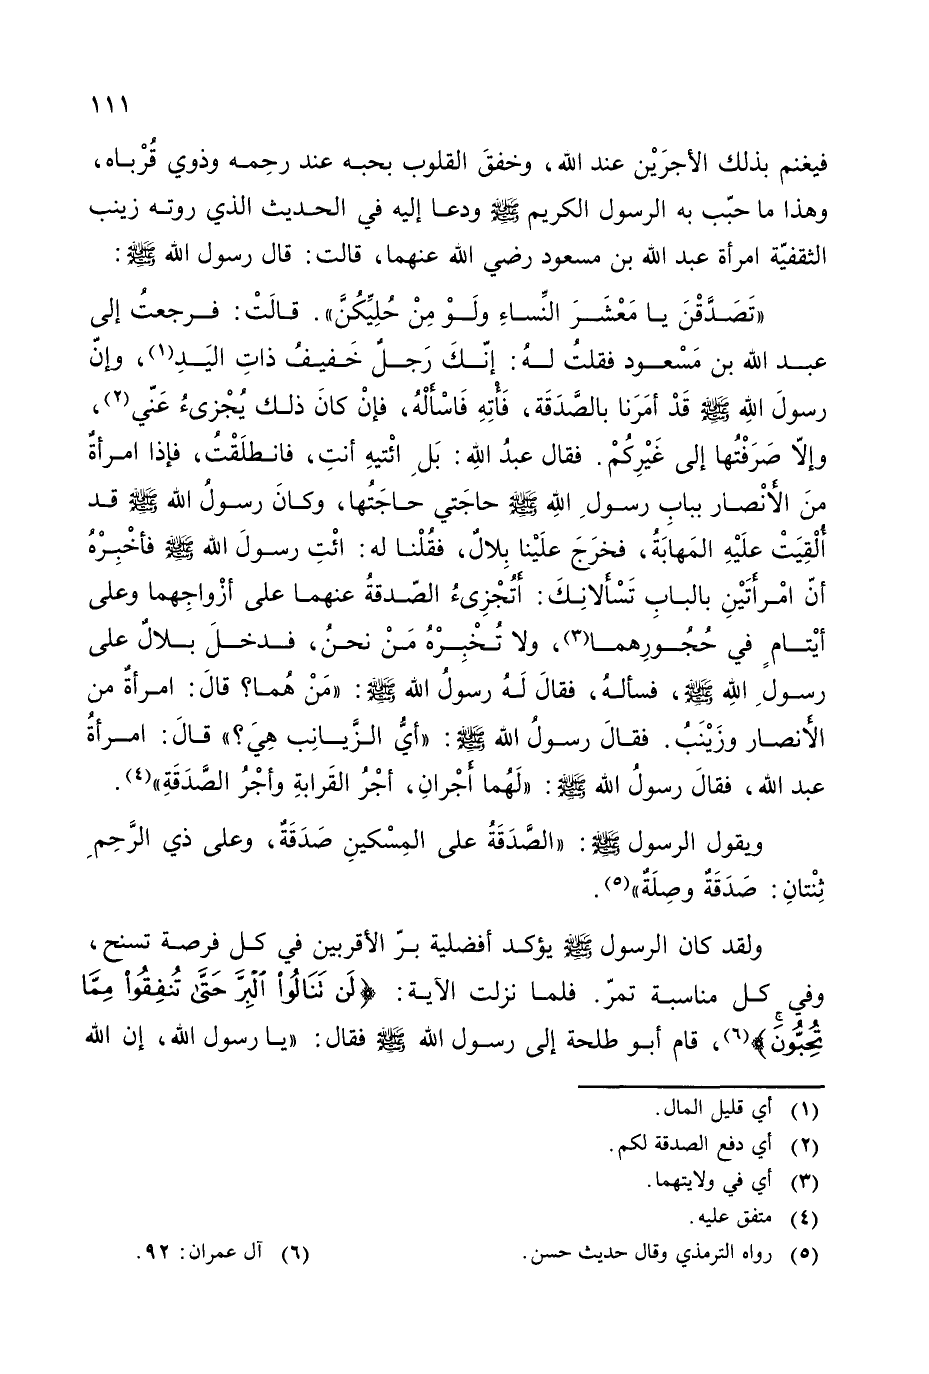 ١١١
فيغنم بذلك الأجرَيْن عند الله، وخفقَ القلوب بحبه عند رحِمه وذوي قُرْباه،
وهذا ما حبّب به الرسول الكريم ﷺ ودعا إليه في الحديث الذي روته زينب
الثقفيّة امرأة عبد الله بن مسعود رضي الله عنهما، قالت: قال رسول الله ﷺ:
«تَصَدَّقْنَ يا مَعْشَرَ النِّساءِ ولَوْ مِنْ حُلِيِّكُنَّ». قالَتْ: فرجعتُ إلى
عبد الله بن مَسْعود فقلتُ لهُ: إنّكَ رَجلٌ خَفيفُ ذاتِ اليَدِ(١)، وإنّ
رسولَ اللهِ ﷺ قَدْ أمَرَنا بالصَّدَقَة، فَأْتِهِ فَاسْأَلْهُ، فإنْ كانَ ذلك يُجْزىءُ عَنّي(٢)،
وإلّا صَرَفْتُها إلى غَيْرِكُمْ. فقال عبدُ اللهِ: بَلِ ائْتيهِ أنتِ، فانطلَقْتُ، فإذا امرأةٌ
منَ الأَنْصار ببابِ رسولِ اللهِ ﷺ حاجَتي حاجَتُها، وكانَ رسولُ الله ﷺ قد
أُلْقِيَتْ علَيْهِ المَهابَةُ، فخرَجَ علَيْنا بِلالٌ، فقُلْنا له: ائتِ رسولَ الله ﷺ فأخْبِرْهُ
أنّ امْرأَتَيْنِ بالبابِ تَسْأَلانِكَ: أَتُجْزِىءُ الصّدقةُ عنهما على أزْواجِهما وعلى
أيْتامٍ في حُجُورِهما(٣)، ولا تُخْبِرْهُ مَنْ نحنُ، فدخلَ بلالٌ على
رسولِ اللهِ ﷺ، فسألهُ، فقالَ لَهُ رسولُ الله ﷺ: «مَنْ هُما؟ قالَ: امرأةٌ من
الأَنصار وزَيْنَبُ. فقالَ رسولُ الله ﷺ: «أيُّ الزَّيانِب هِيَ؟» قالَ: امرأةُ
عبد الله، فقالَ رسولُ الله ﷺ: «لَهُما أَجْرانِ، أجْرُ القَرابةِ وأجْرُ الصَّدَقَةِ»(٤).
ويقول الرسول ﷺ: «الصَّدَقَةُ على المِسْكينِ صَدَقَةٌ، وعلى ذي الرَّحِمِ
ثِنْتانِ: صَدَقَةٌ وصِلَةٌ»(٥).
ولقد كان الرسول ﷺ يؤكد أفضلية برّ الأقربين في كل فرصة تسنح،
وفي كل مناسبة تمرّ. فلما نزلت الآية: ﴿لَن تَنَالُوا۟ ٱلۡبِرَّ حَتَّىٰ تُنفِقُوا۟ مِمَّا
تُحِبُّونَۚ﴾(٦)، قام أبو طلحة إلى رسول الله ﷺ فقال: «يا رسول الله، إن الله
(١) أي قليل المال.
(٢) أي دفع الصدقة لكم.
(٣) أي في ولايتهما.
(٤) متفق عليه.
(٥) رواه الترمذي وقال حديث حسن. (٦) آل عمران: ٩٢.